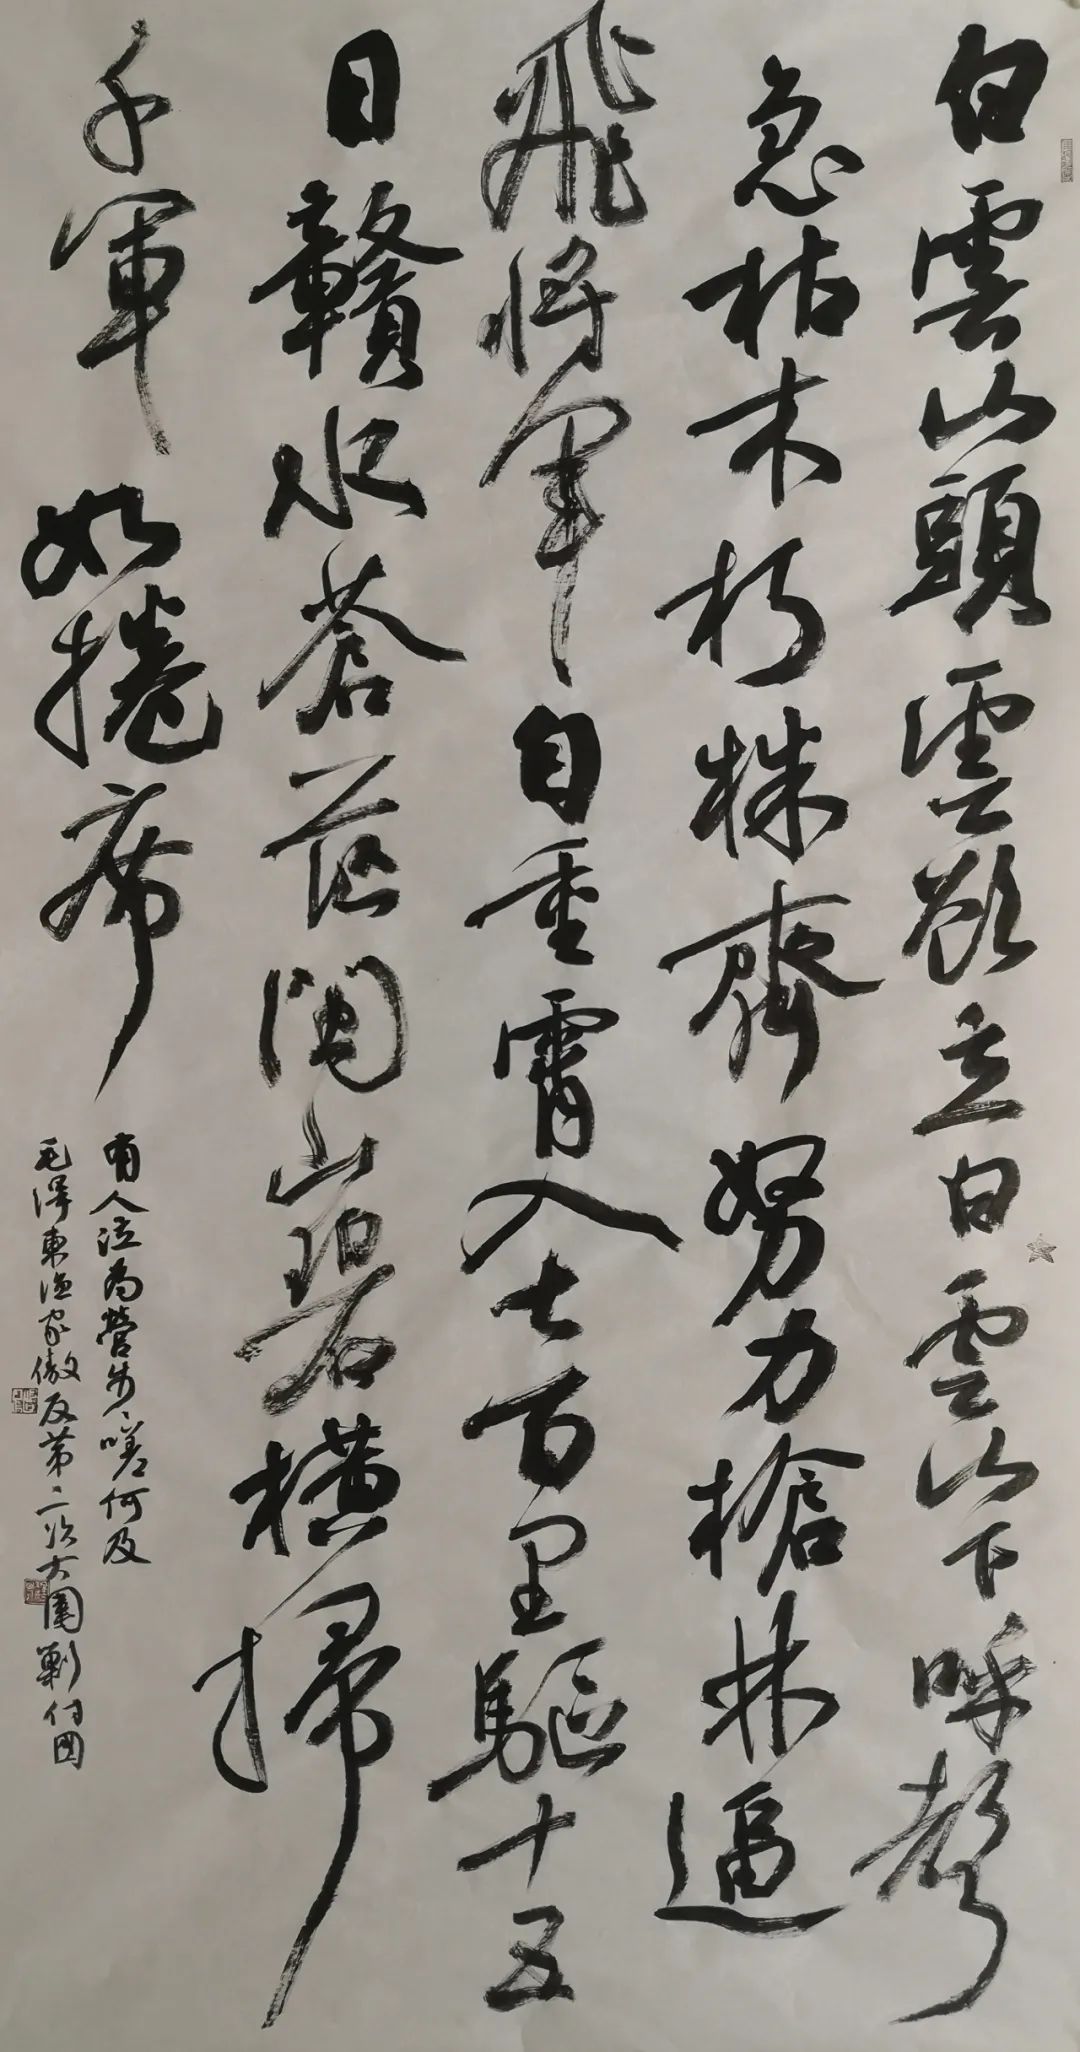 白雲山頭雲欲立白雲山下呼聲
急枯木朽株齊努力槍林逼
飛將軍自重霄入七百里驅十五
日贛水蒼茫閩山碧橫掃
千軍如捲席
有人泣為營步嗟何及
毛澤東漁家傲反第二次大圍剿